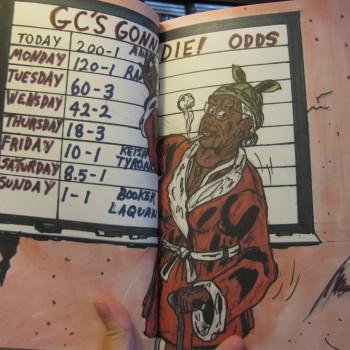 GC'S GONNA DIE! ODDS
TODAY 200-1
MONDAY 120-1
TUESDAY 60-3
WENSDAY 42-2
THURSDAY 18-3
FRIDAY 10-1
SATURDAY 8.5-1 TYRONE
SUNDAY 1-1 BOOKER
LAQUAN